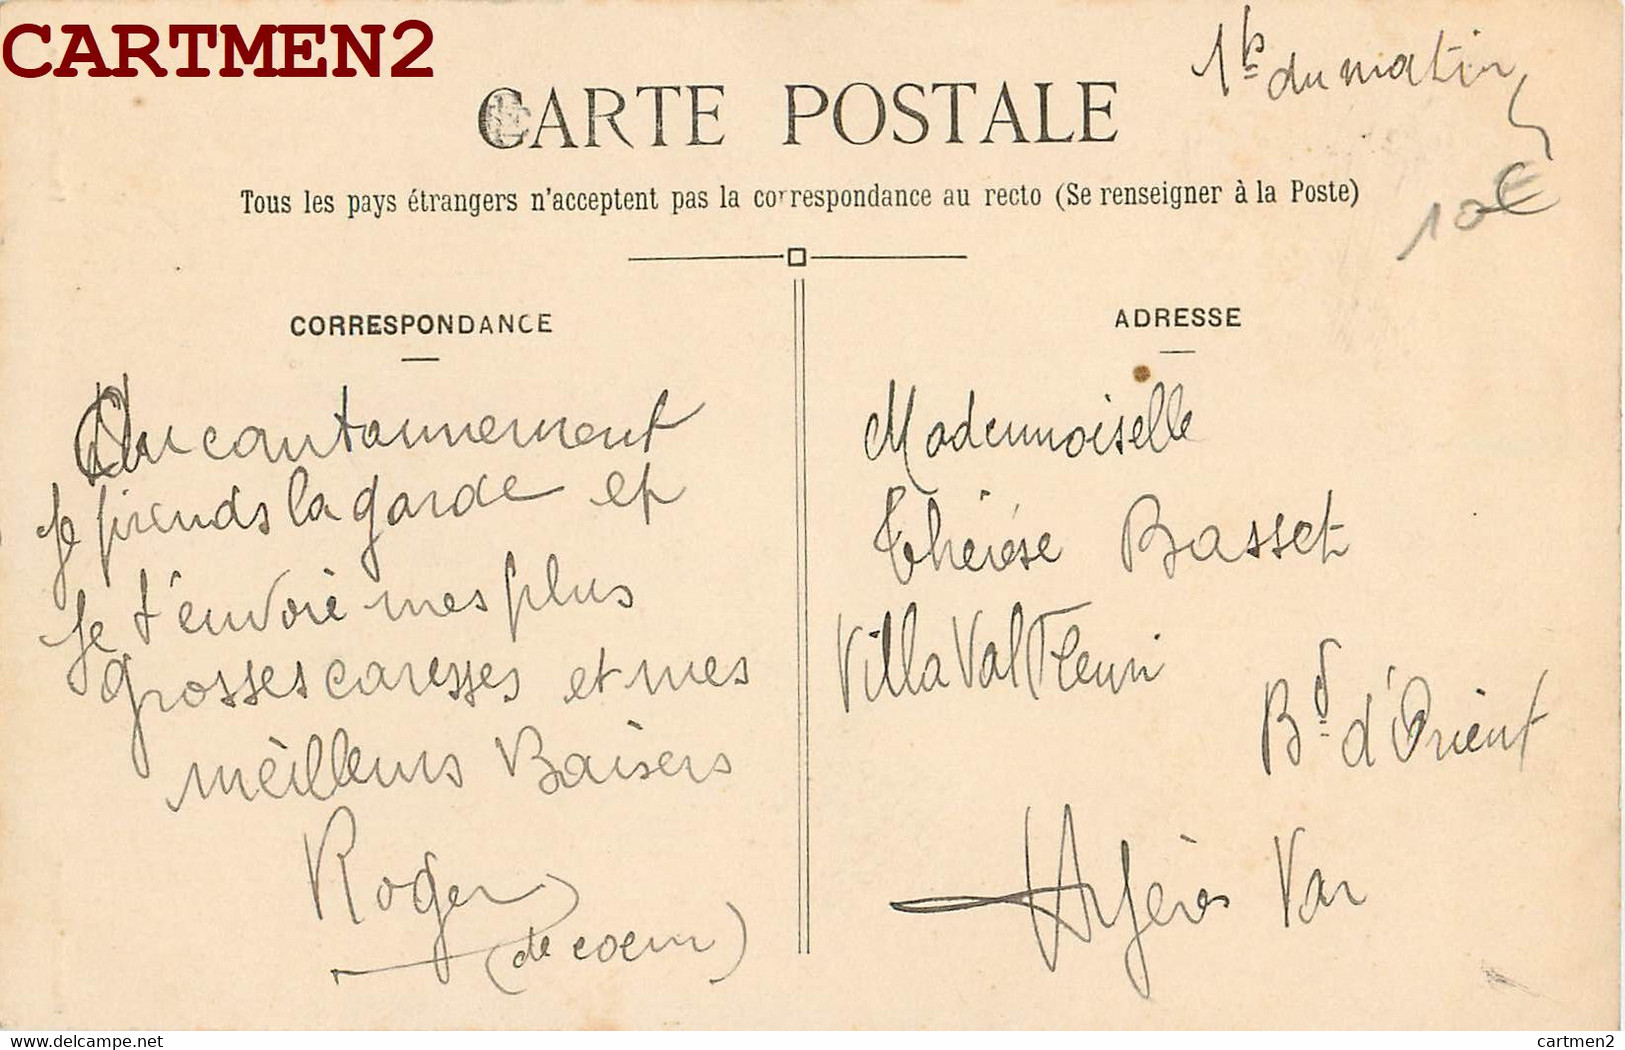 CARTMEN2
1h du matin
CARTE POSTALE
Tous les pays étrangers n'acceptent pas la correspondance au recto (Se renseigner à la Poste)
10€
CORRESPONDANCE
Au cantonnement
je prends la garde et
je t'envoie mes plus
grosses caresses et mes
meilleurs Baisers
Roger
(de coeur)
ADRESSE
Mademoiselle
Thérèse Basset
Villa Val Fleuri
Bd d'Orient
Hyères Var
delcampe.net
cartmen2